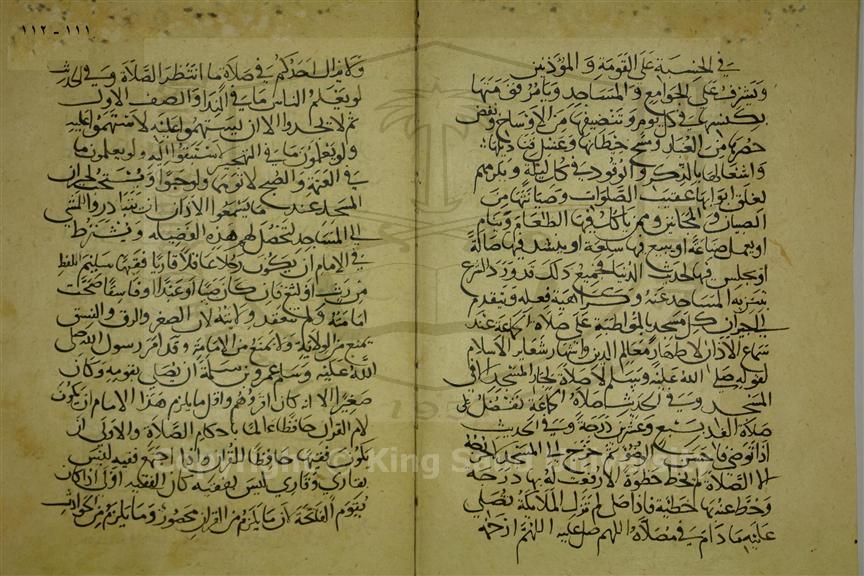 ١١١-١١٢
في الحسبة على القومة والمؤذنين
ويشرف على الجوامع والمساجد ويامر قومتها
بكنسها في كل يوم وتنضيفها من الاوساخ ونفض
حصرها من الغبار ومسح حيطانها وغسل قناديلها
واشعالها بالوقود في كل ليلة ويامرهم
بغلق ابوابها عقيب الصلوات وصيانتها من
الصبيان والمجانين وممن ياكل فيها الطعام وينام
او يعمل صناعة او يبيع فيها سلعة او ينشد فيها ضالة
او يجلس فيها لحديث الدنيا فجميع ذلك قد ورد الشرع
بتنزيه المساجد عنه وكراهية فعله ويتقدم
الى جيران كل مسجد بالمواظبة على صلاة الجماعة عند
سماع الاذان لاظهار معالم الدين واشهار شعاير الاسلام
لقوله صلى الله عليه وسلم لا صلاة لجار المسجد الا في
المسجد وفي الحديث صلاة الجماعة تفضل على
صلاة الفذ بسبع وعشرين درجة وفي الحديث
اذا توضى فاحسن الوضوء ثم خرج الى المسجد لا يخرجه
الا الصلاة لم يخط خطوة الا رفعت له بها درجة
وحط عنه بها خطية فاذا صلى لم تزل الملايكة تصلي
عليه ما دام في مصلاه اللهم صل عليه اللهم ارحمه
ولا يزال احدكم في صلاة ما انتظر الصلاة وفي الحديث
لو يعلم الناس ما في النداء والصف الاول
ثم لا يجدوا الا ان يستهموا عليه لاستهموا عليه
ولو يعلمون ما في التهجير لاستبقوا اليه ولو يعلمون ما
في العتمة والصبح لاتوهما ولو حبوا ويستحب لجيران
المسجد عند ما يسمعوا الاذان ان يتبادروا للمشي
الى المساجد لتحصل لهم هذه الفضيله ويشترط
في الامام ان يكون رجلا عاقلا قاريا فقيها سليم اللفظ
من رت او لثغ فان كان صبيا او عبدا او فاسقا صحت
امامته ولم تنعقد ولايته لان الصغر والرق والفسق
يمنع من الولاية ولا يمنع من الامامة وقد امر رسول الله صلى
الله عليه وسلم عمرو بن سلمة ان يصلي بقومه وكان
صغيرا الا انه كان اقراهم واقل ما يلزم هذا الامام ان يكون
لام القران حافظا عالما باحكام الصلاة والاولى ان
يكون فقيها حافظا للقران واذا اجتمع فقيه ليس
بقاري وقاري ليس بفقيه كان الفقيه اولى اذا كان
يقوم الفاتحة لان ما يلزم من القران محصور وما يلزم من الحوادث
Copyright © King Saud University